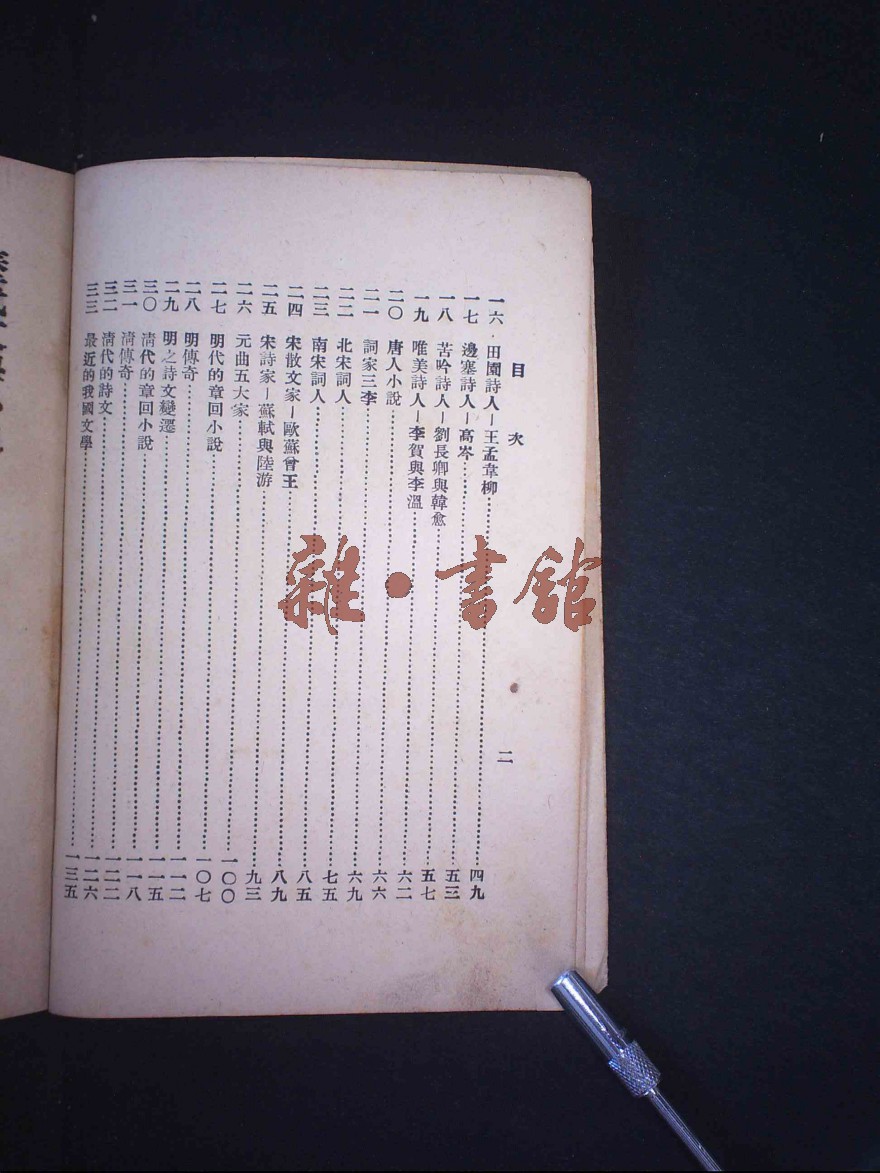 目次
二
一六．田園詩人—王孟韋柳……四九
一七 邊塞詩人—高岑……五三
一八 苦吟詩人—劉長卿與韓愈……五七
一九 唯美詩人—李賀與李溫……六二
二〇 唐人小說……六六
二一 詞家三李……六九
二二 北宋詞人……七五
二三 南宋詞人……八五
二四 宋散文家—歐蘇曾王……八九
二五 宋詩家—蘇軾與陸游……九三
二六 元曲五大家……一〇〇
二七 明代的章回小說……一〇七
二八 明傳奇……一一二
二九 明之詩文變遷……一一五
三〇 清代的章回小說……一一八
三一 清傳奇……一二二
三二 清代的詩文……一二六
三三 最近的我國文學……一三五
雜·書館